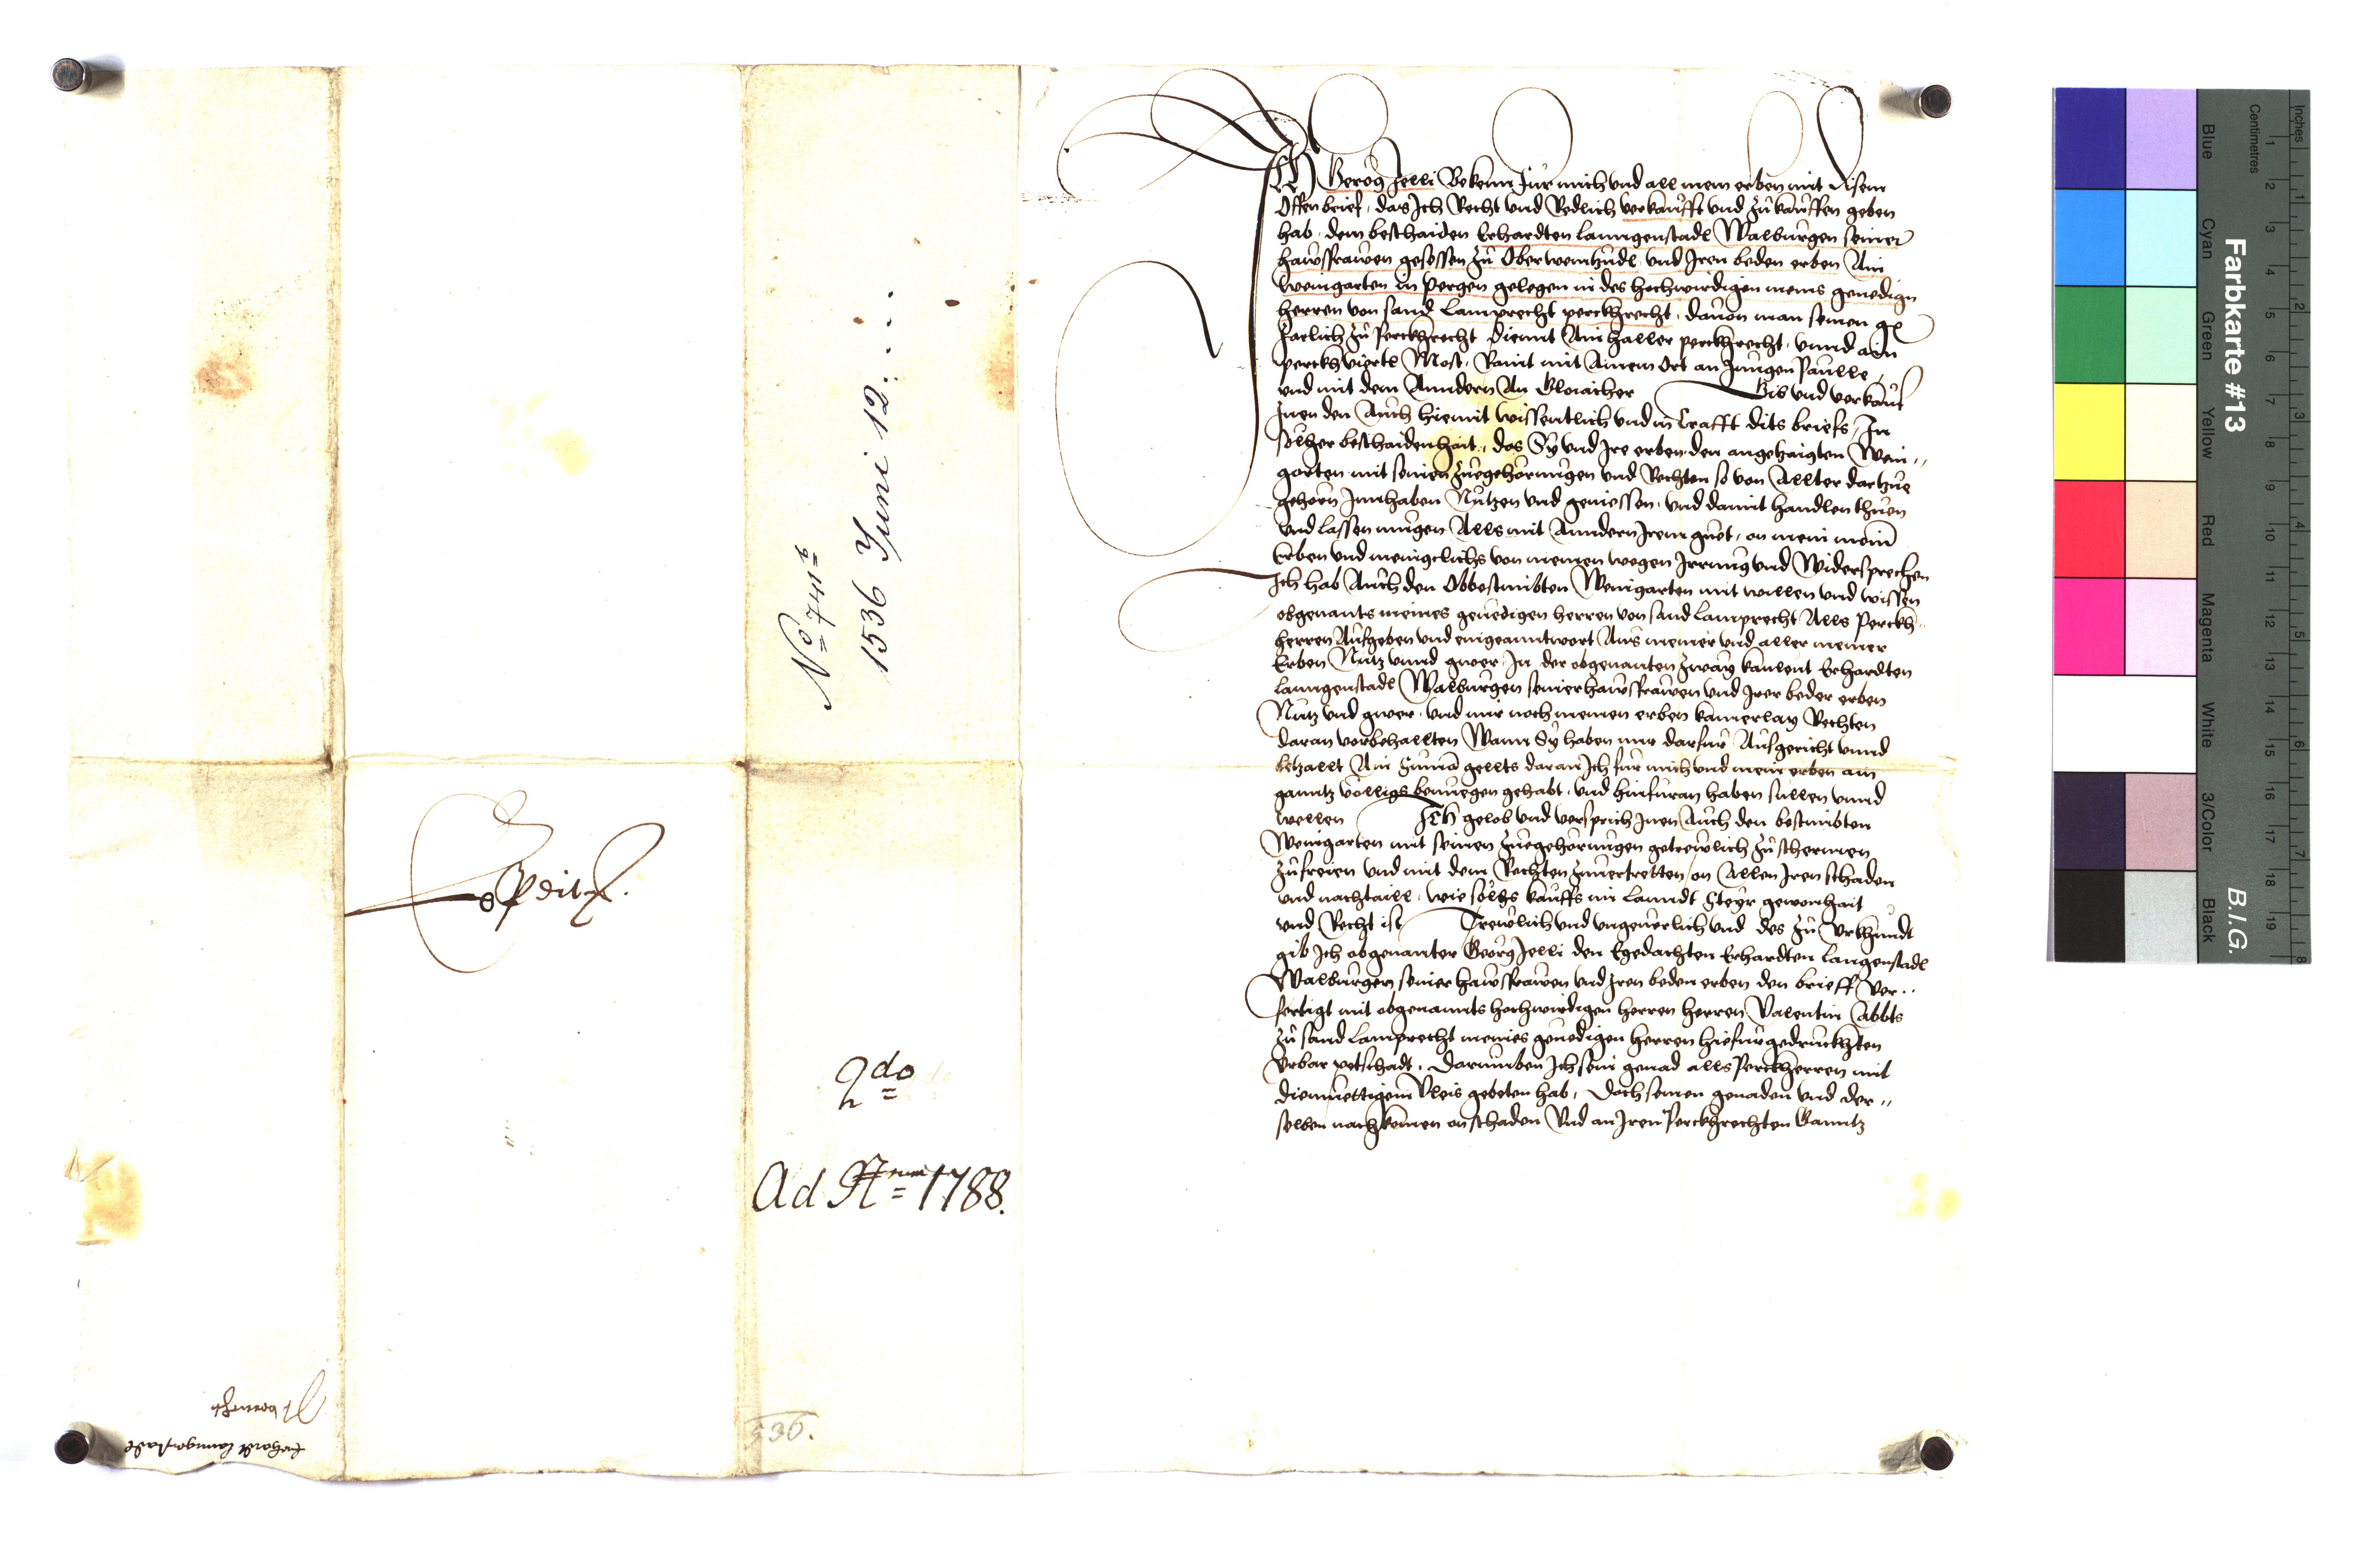 ICH Gerog Jelli Bekenn fur mich vnd all mein erben mit disem
Offen brief, das Ich Recht vnd Redlich verkaufft vnd zu kauffen geben
hab, dem beschaiden Erhardten lanngenstadl Walburgen seiner
hawsfrawen gesessen zu Oberweinzudl vnd Iren beden erben Ain
weingarten in pergen gelegen in des hochwirdigen meins genedign
herren von sand Lamprecht perckhrecht, dauon man seinen g
Jarlich zu Perckhrecht diennt Ain haller perckhrecht, vnnd ain
perckh viertl Most, Raint mit Ainem Ort an Jungen Paulle,
vnd mit dem Anndern An Gloiacher Gib vnd verkauf
Inen den Auch hiemit wissentlich vnd in Crafft dits briefs, In
solher beschaidenhait, das Sy vnd Ire erben den angezaigten Wein„
garten mit seinen zuegehorungen vnd Rechten so von Allter dartzue
gehorn Innhaben Nutzen vnd geniessen, vnd damit handlen thuen
vnd lassen mugen Alls mit Anndern Irem guet, on mein meiner
Erben vnd menigclichs von meinen wegen Irrung vnd Widersprechen
Ich hab Auch den Obbestimbten Weingarten mit willen vnd wissen
obgenants meines genedigen herren von sand Lamprecht Alls Perckh„
herren Aufgeben vnd eingeanntwort Aus meiner vnd aller meiner
Erben Nutz vnnd gwer, In der obgenanten zway kanleut Erhardten
lanngenstadl Walburgen seiner hawsfrawen vnd Irer beder erben
Nutz vnd gwer, vnd mir noch meinen erben kainerlay Rechten
daran vorbehallten Wann Sy haben mir darfur Aufgericht vnnd
betzallt Ain Suma gellts daran Ich fur mich vnd mein erben ain
ganntz volligs benuegen gehabt, vnd hinfuran haben sullen vnnd
wellen Ich gelob vnd versprich Inen Auch den bestimbten
Weingarten mit seinen zuegehorungen getrewlich zu schermen
zu freien vnd mit dem Rechten zuuertretten, on Allen Iren schaden
vnd nachtaill, wie solhs kauffs im Lanndt Steyr gewonhait
vnd Recht ist Trewlich vnd vngeuerlich vnd des zu Vrkhundt
gib Ich obgenanter Georg Jelli den Egedachten Erhardten Langenstadl
Walburgen seiner hawsfrawen vnd Iren beden erben den brieff Ver„
fertigt mit obgenannts hochwirdigen herren herren Valentin Abbts
zu sand Lamprecht meines genedigen herren hiefur gedruckhten
Vrbar petschadt, Darumben Ich sein genad alls Perckherren mit
diemuettigem Vleis gebeten hab, Doch seinen genaden vnd der„
selben nachkomen on schaden Vnd an Iren Perckhrechten Ganntz
No 741
1536 Juni 12.
2do
Ad Nrum 1788.
536.
Erhardt Lanngenstadl
Farbkarte #13
B.I.G.
Blue
Cyan
Green
Yellow
Red
Magenta
White
3/Color
Black
Centimetres
Inches
1 2 3 4 5 6 7 8 9 10 11 12 13 14 15 16 17 18 19
1 2 3 4 5 6 7 8